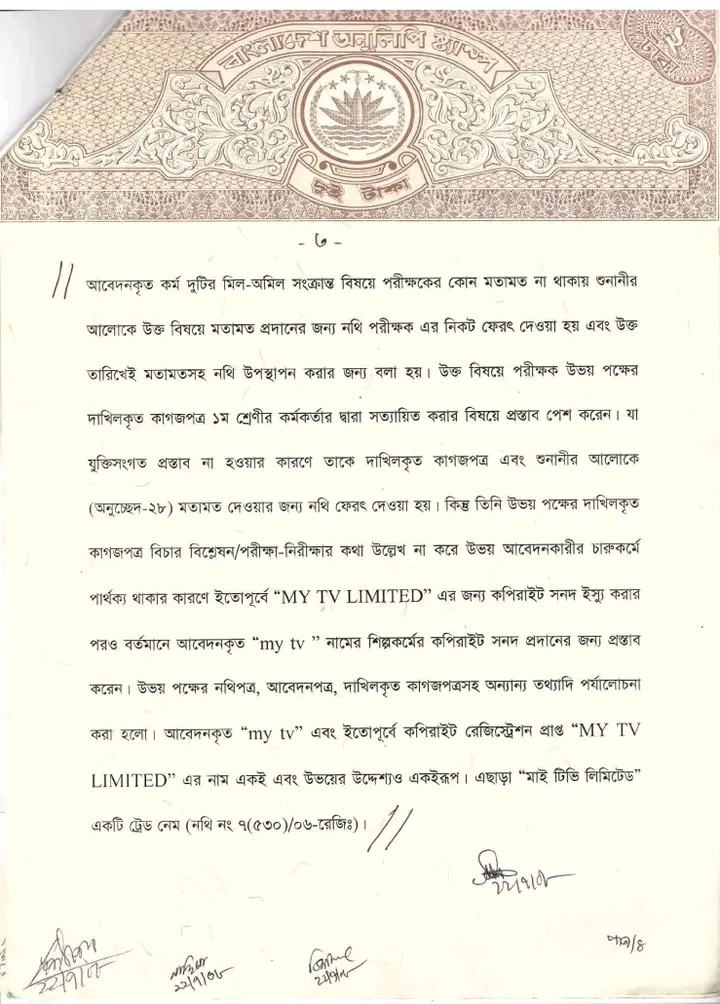 বাংলাদেশ অনুলিপি স্ট্যাম্প
দুই টাকা
- ৩ -
আবেদনকৃত কর্ম দুটির মিল-অমিল সংক্রান্ত বিষয়ে পরীক্ষকের কোন মতামত না থাকায় শুনানীর
আলোকে উক্ত বিষয়ে মতামত প্রদানের জন্য নথি পরীক্ষক এর নিকট ফেরৎ দেওয়া হয় এবং উক্ত
তারিখেই মতামতসহ নথি উপস্থাপন করার জন্য বলা হয়। উক্ত বিষয়ে পরীক্ষক উভয় পক্ষের
দাখিলকৃত কাগজপত্র ১ম শ্রেণীর কর্মকর্তার দ্বারা সত্যায়িত করার বিষয়ে প্রস্তাব পেশ করেন। যা
যুক্তিসংগত প্রস্তাব না হওয়ার কারণে তাকে দাখিলকৃত কাগজপত্র এবং শুনানীর আলোকে
(অনুচ্ছেদ-২৮) মতামত দেওয়ার জন্য নথি ফেরৎ দেওয়া হয়। কিন্তু তিনি উভয় পক্ষের দাখিলকৃত
কাগজপত্র বিচার বিশ্লেষন/পরীক্ষা-নিরীক্ষার কথা উল্লেখ না করে উভয় আবেদনকারীর চারুকর্মে
পার্থক্য থাকার কারণে ইতোপূর্বে “MY TV LIMITED” এর জন্য কপিরাইট সনদ ইস্যু করার
পরও বর্তমানে আবেদনকৃত “my tv ” নামের শিল্পকর্মের কপিরাইট সনদ প্রদানের জন্য প্রস্তাব
করেন। উভয় পক্ষের নথিপত্র, আবেদনপত্র, দাখিলকৃত কাগজপত্রসহ অন্যান্য তথ্যাদি পর্যালোচনা
করা হলো। আবেদনকৃত “my tv” এবং ইতোপূর্বে কপিরাইট রেজিস্ট্রেশন প্রাপ্ত “MY TV
LIMITED” এর নাম একই এবং উভয়ের উদ্দেশ্যও একইরূপ। এছাড়া “মাই টিভি লিমিটেড”
একটি ট্রেড নেম (নথি নং ৭(৫৩০)/০৬-রেজিঃ)।
২২/৭/০৮
পাতা/৪
২২/৭/০৮
২২/৭/০৮
২২/৭/০৮